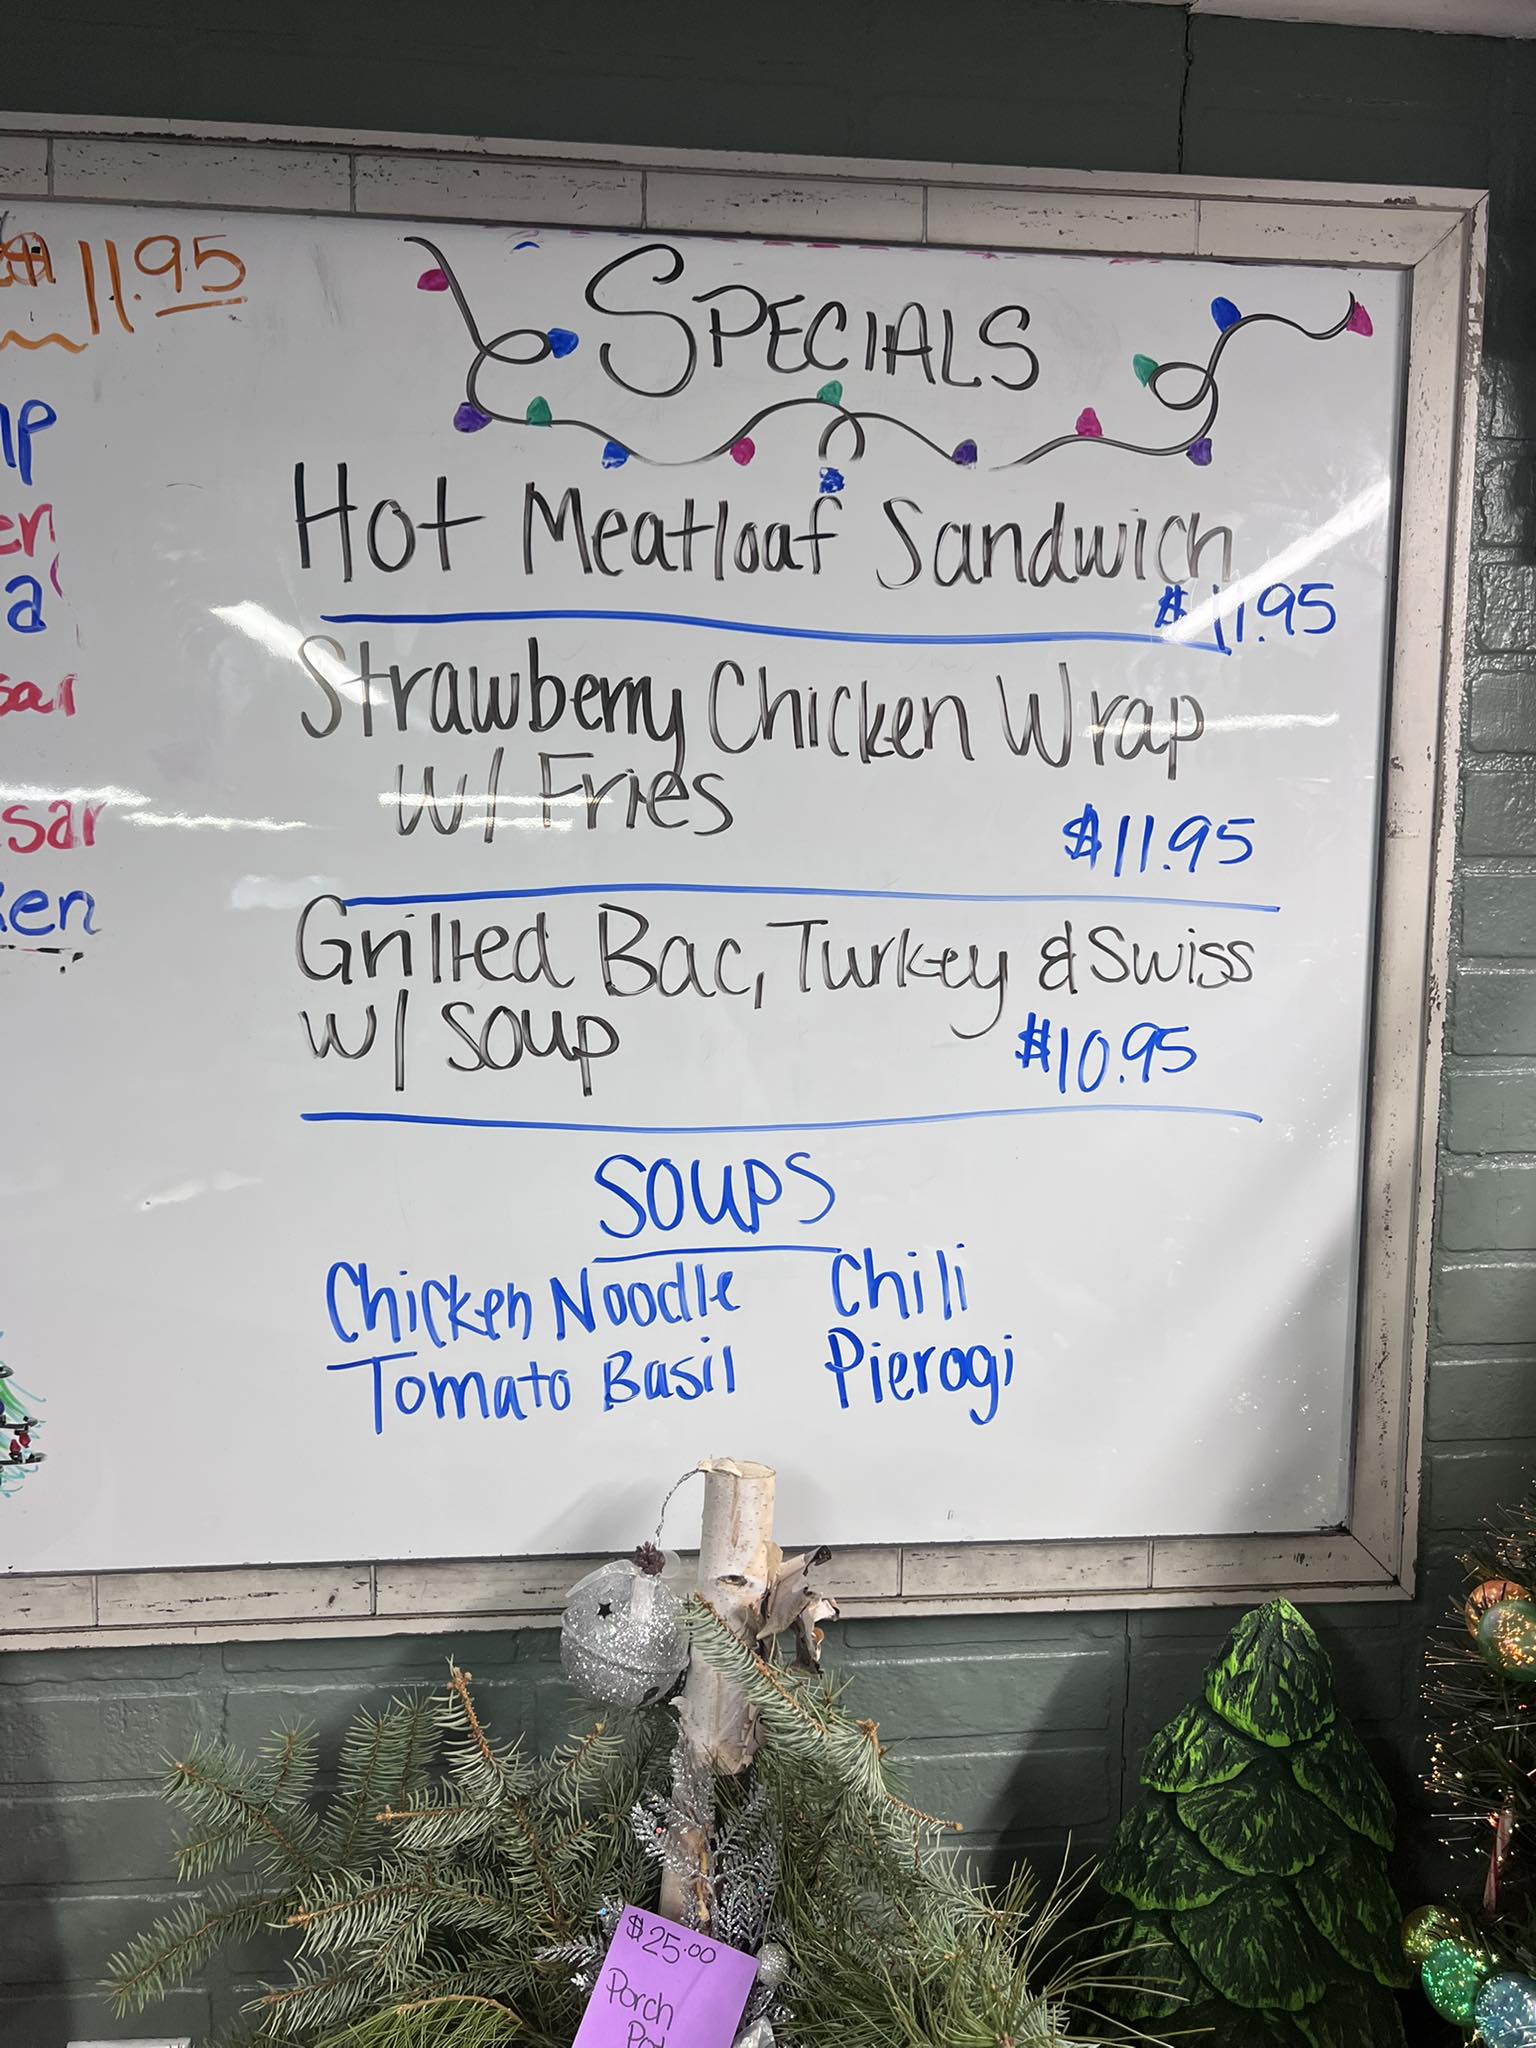 11.95
SPECIALS
Hot Meatloaf Sandwich
$11.95
Strawberry Chicken Wrap
w/ Fries
$11.95
Grilled Bac, Turkey & Swiss
w/ Soup
$10.95
SOUPS
Chicken Noodle Chili
Tomato Basil Pierogi
$25.00
Porch